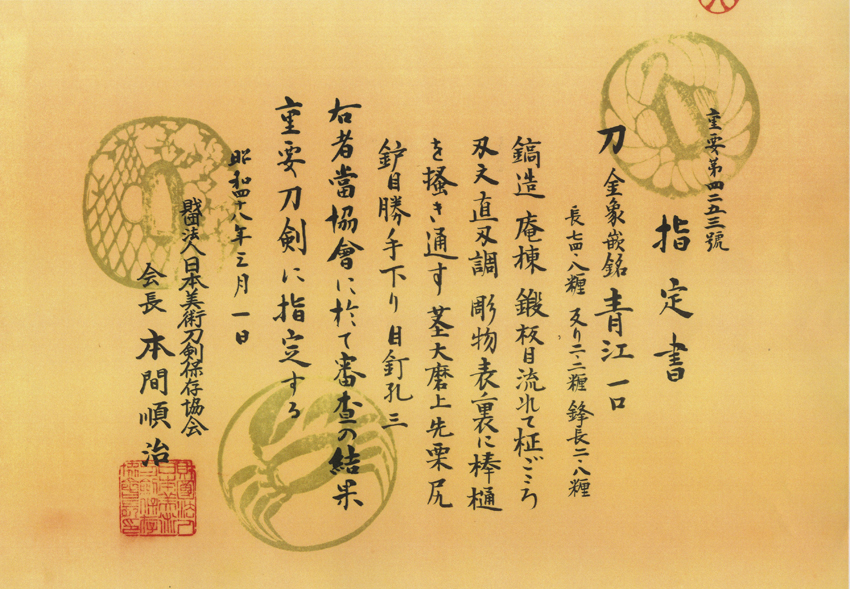 重要第四二五三號
指定書
刀 金象嵌銘 青江 一口
長七四・八糎 反り二・二糎 鋒長二・八糎
鎬造 庵棟 鍛板目流れて柾ごころ
刃文直刃調 彫物表裏に棒樋
を掻き通す 茎大磨上先栗尻
鈩目勝手下り 目釘孔三
右者當協會に於て審査の結果
重要刀剣に指定する
昭和四十八年三月一日
財団法人日本美術刀剣保存協会
会長 本間順治